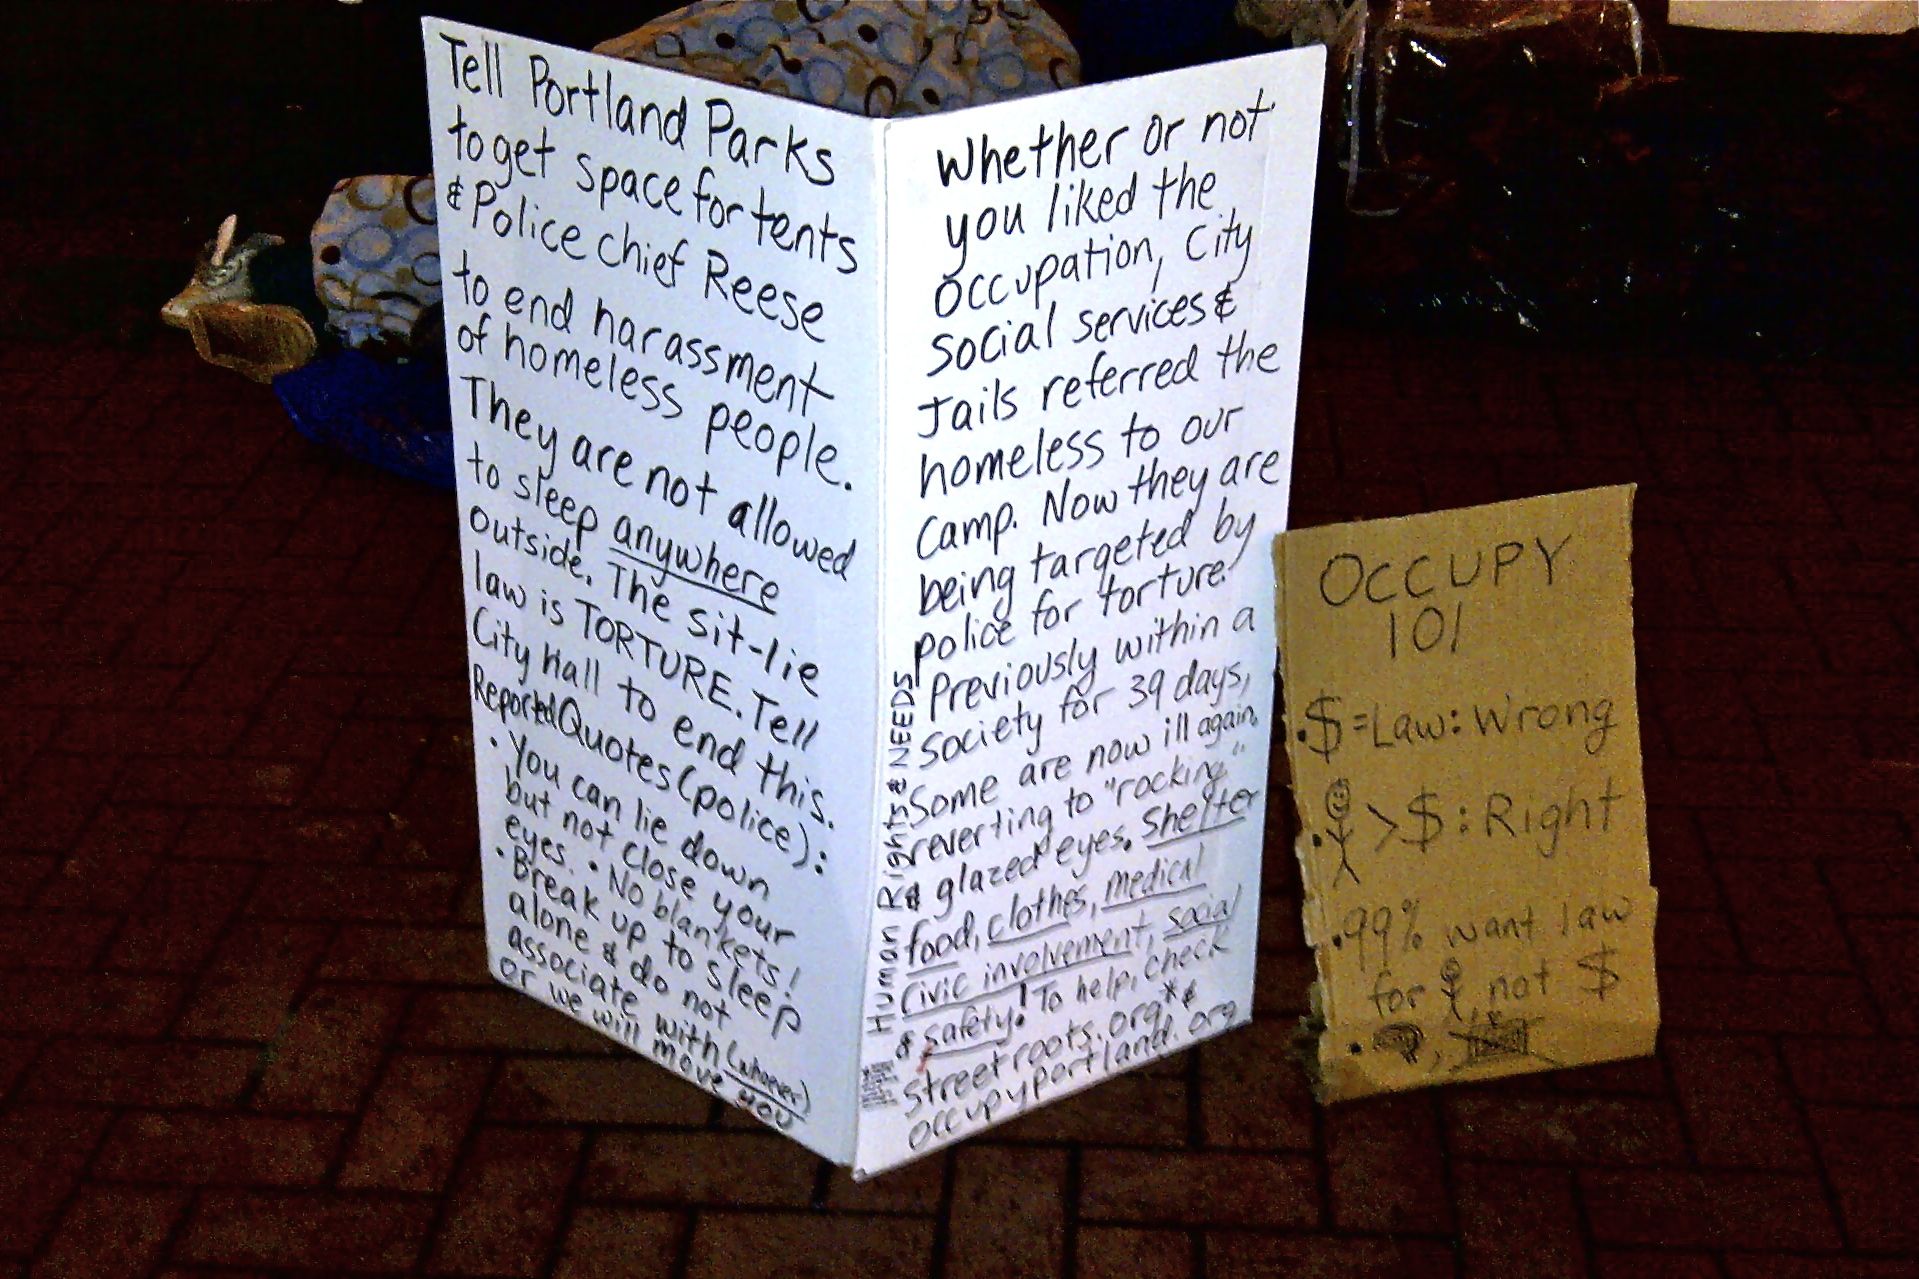 Tell Portland Parks
to get space for tents
& Police Chief Reese
to end harassment
of homeless people.
They are not allowed
to sleep anywhere
outside. The sit-lie
law is TORTURE. Tell
City Hall to end this.
Reported Quotes (police):
• You can lie down
but not close your
eyes. • No blankets!
• Break up to sleep
alone & do not
associate with (whoever)
or we will move you
Whether or not
you liked the
occupation, City
social services &
Jails referred the
homeless to our
camp. Now they are
being targeted by
police for torture.
Previously within a
society for 39 days,
some are now ill again,
reverting to "rocking"
& glazed eyes. Shelter
food, clothes, medical
civic involvement, social
& safety! To help, check
streetroots.org* &
occupyportland.org
Human Rights & NEEDS
OCCUPY
101
• $=Law: Wrong
• > $: Right
• 99% want law
for , not $